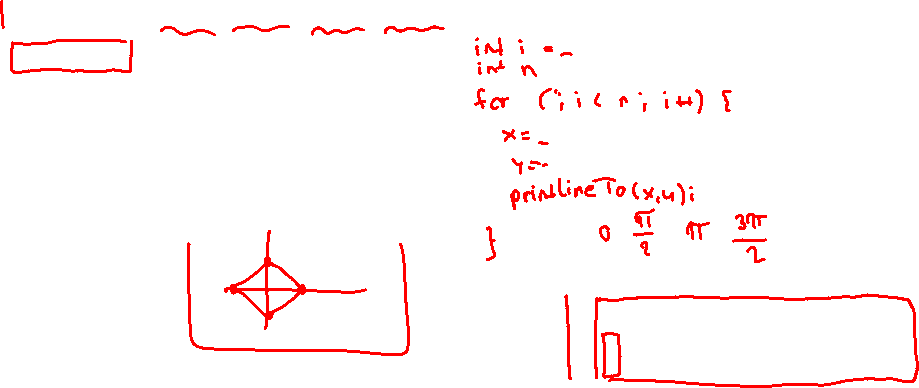 int i = _
int n
for (; i < n; i++) {
x = _
y = -
printlineTo(x,y);
}
0 π/2 π 3π/2